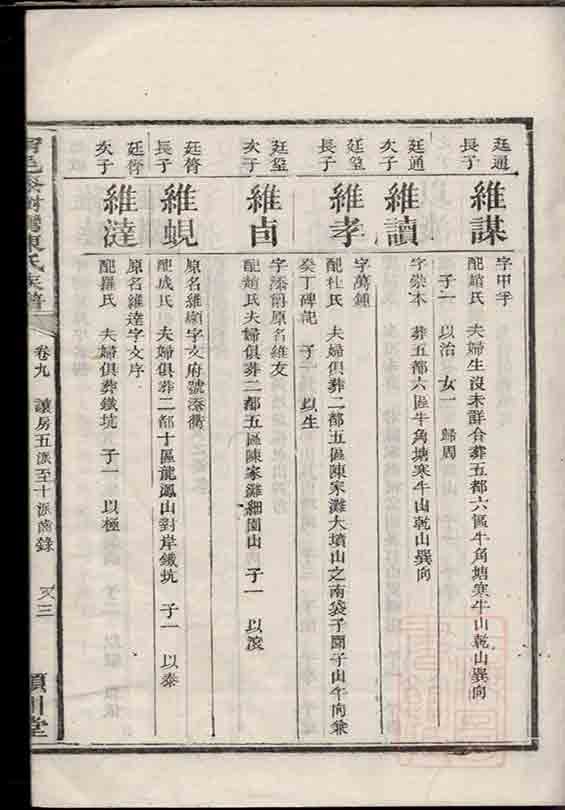 廷通長子
維謀
字甲孚
配趙氏 夫婦生沒未詳合葬五都六區牛角塘寒牛山乾山巽向
子一 以治 女一 歸周
廷通次子
維讀
字崇本 葬五都六區牛角塘寒牛山乾山巽向
廷璧長子
維孝
字萬鍾
配杜氏 夫婦俱葬二都五區陳家灘大墳山之南袋子圍子山午向兼
癸丁碑記 子一 以生
廷璧次子
維卣
字添爵原名維友
配趙氏夫婦俱葬二都五區陳家灘細園山 子一 以滾
廷脊長子
維蜆
原名維顯字文府號漆衢
配成氏 夫婦俱葬二都十區龍鳳山對岸鐵坑 子一 以泰
廷脊次子
維澾
原名維達字文序
配羅氏 夫婦俱葬鐵坑 子一 以極
陳氏家譜
卷九 讓房五派至十派齒錄
又三
潁川堂